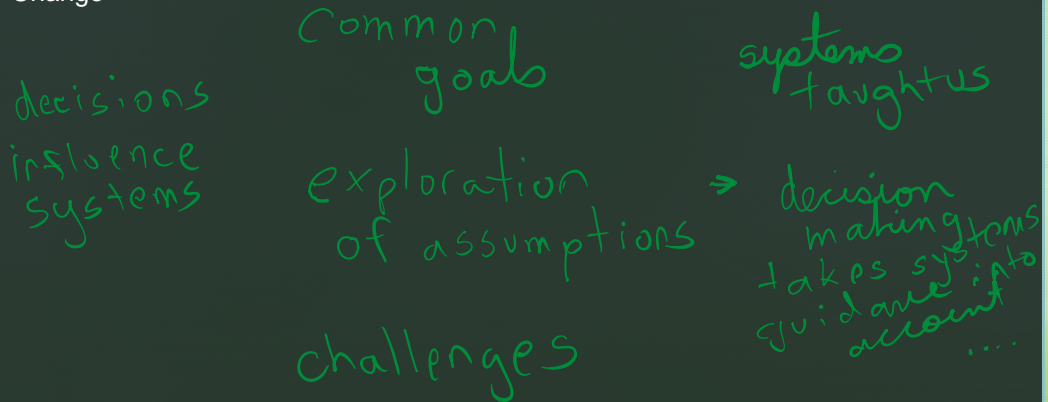 Change
decisions
influence
systems
Common
goals
exploration
of assumptions
challenges
systems
taught us
→ decision
making
takes systems
guidance into
account
....